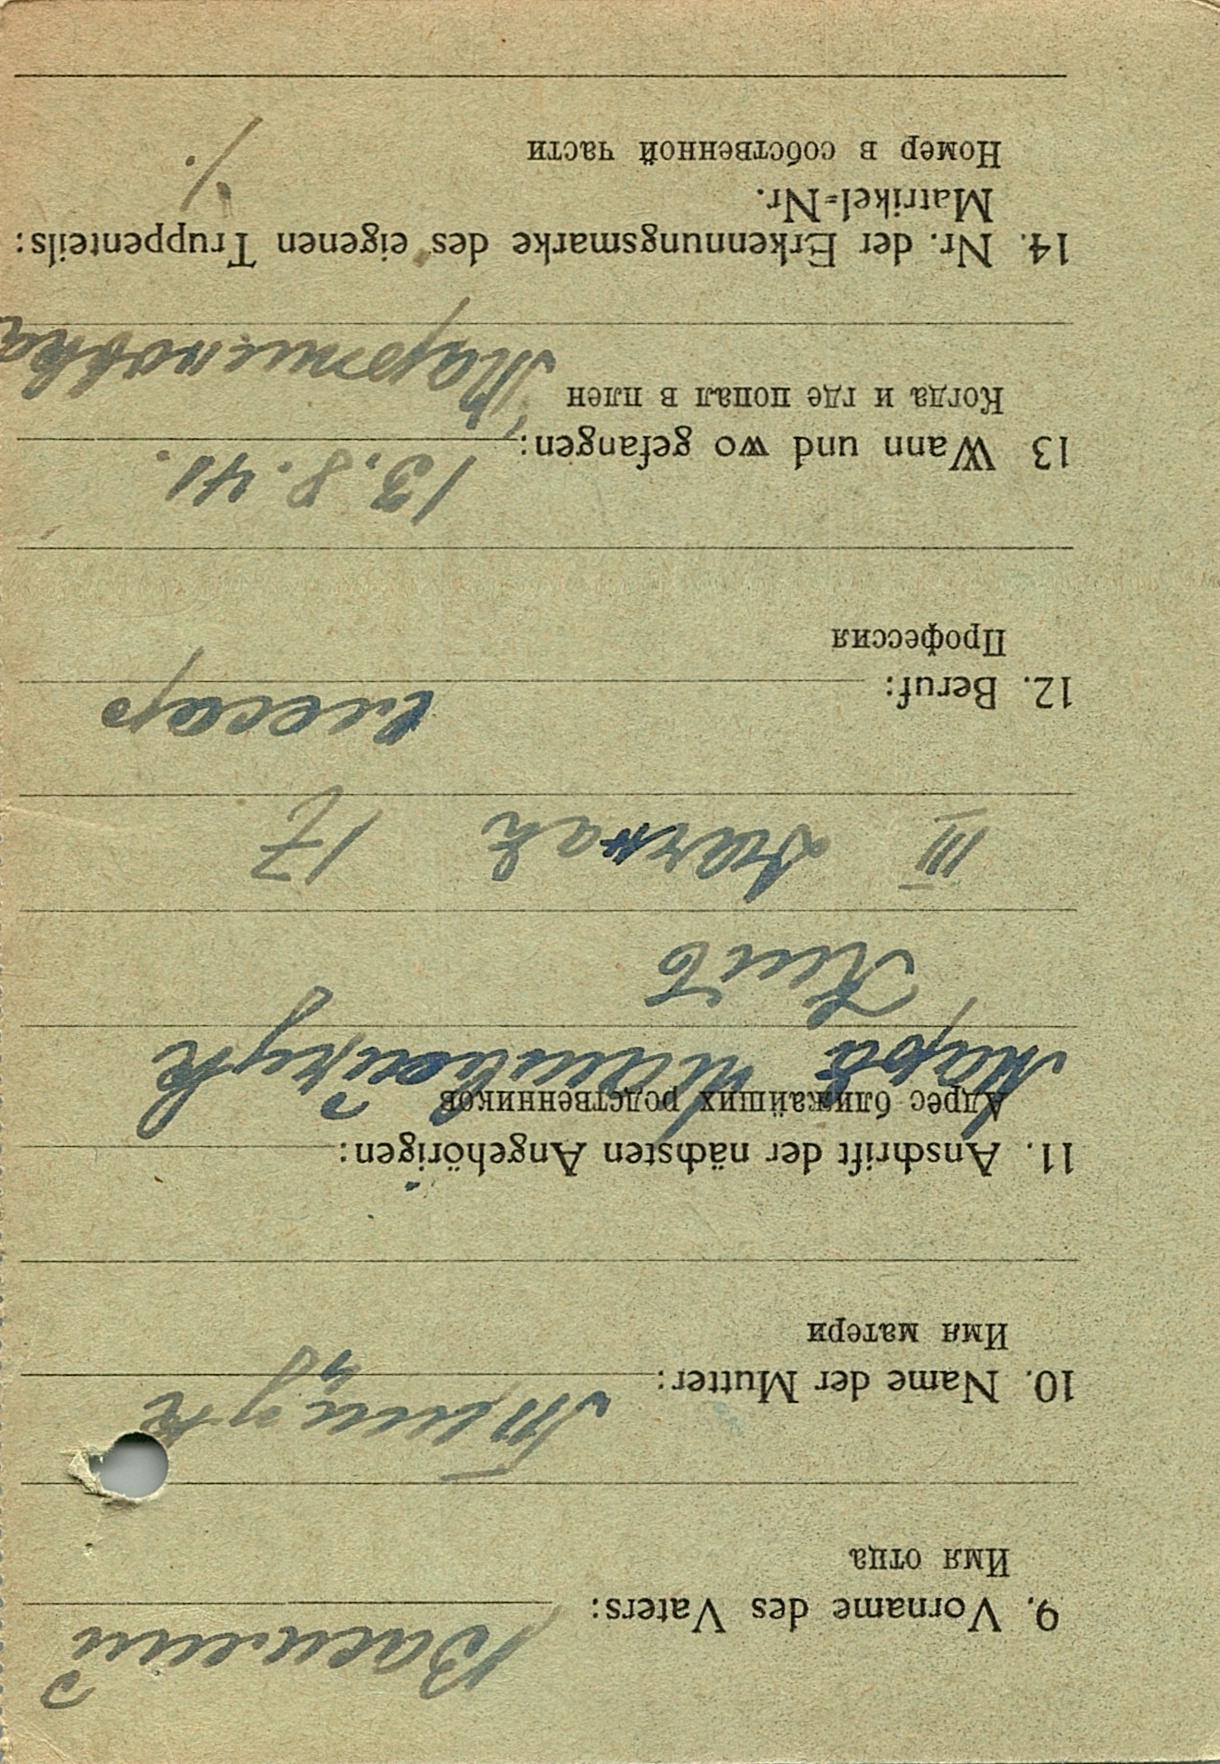 9. Vorname des Vaters: Василий
Имя отца
10. Name der Mutter:
Имя матери
11. Anschrift der nächsten Angehörigen:
Адрес ближайших родственников
Киев
III 17
12. Beruf: слесар
Профессия
13 Wann und wo gefangen: 13.8.41.
Когда и где попал в плен Мартиновка
14. Nr. der Erkennungsmarke des eigenen Truppenteils:
Matrikel=Nr.
Номер в собственной части